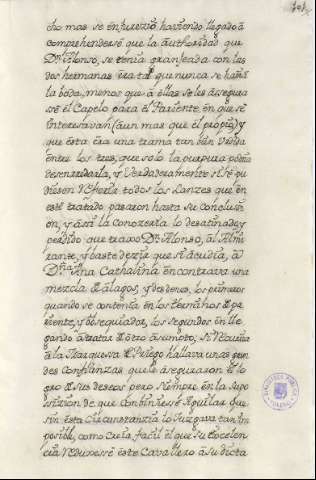 cho mas se enfurezió haviendo llegado à
comprehenderse que la authoridad que
Dn. Alonso, se tenía granjeada con las
dos hermanas era tal que nunca se haría
la boda, menos que à ellas se les asegura
se el Capelo para el Pariente, en que se
interesavan (aun mas que el propio) y
que esta era una trama tan bien Vrdida
entre los tres, que solo la purpura podia
desenredarla, y Verdaderamente si se pu
diesen todos los Lanzes que en
este tratado pasaron hasta su conclusi
on, y así la Conozería lo desatinado y
perdido que traxo Dn. Alonso, al Almi
rante, y baste dezir que si acudia, à
Dña. Ana Cathalina encontrava una
mezcla de alagos, y desdenes, los primeros
quando se contenía en los terminos de
y obsequiador, los segundos en lle
gando à tratar de otro asumpto; si
à la Marquesa de Priego hallava unas gran
des Confianzas que le aseguraron el lo
gro de sus deseos pero siempre en la supo
sizion de que combiniese Aguilar que
sin esta Circunstanzia lo Juzgava tan Im
posible, como Creía facil el que su Excelen
cia reduxesse este Cavallero à su dicta